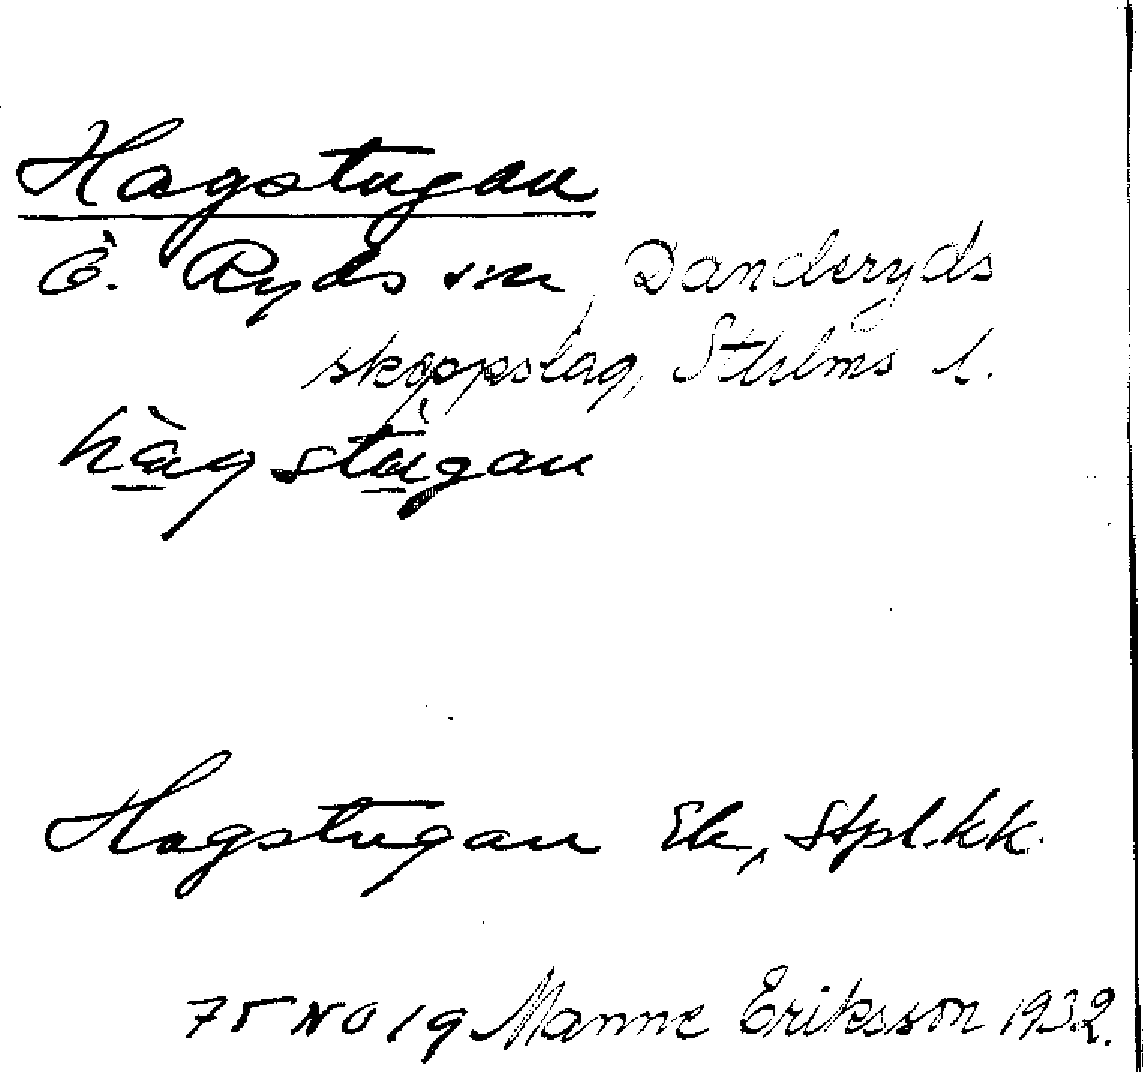 Hagstugan
Ö. Ryds sn, Danderyds
skeppslag, Sthlms l.
hàgstùgan
Hagstugan Ek, Stpl.kk.
75 NO 19 Manne Eriksson 1932.